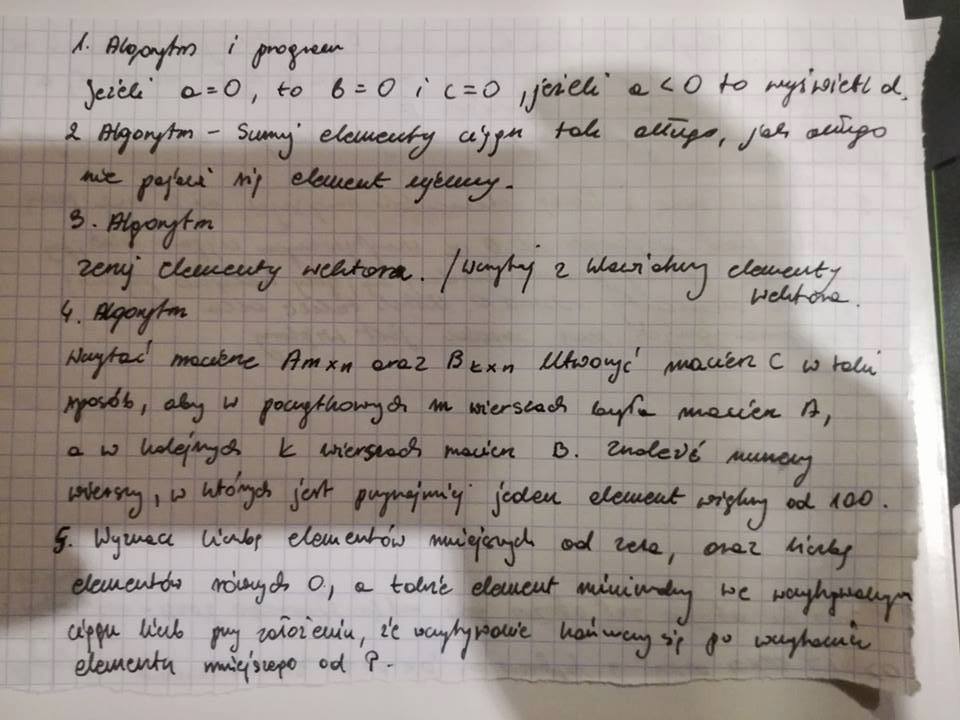 1. Algorytm i program
Jeżeli a=0, to b=0 i c=0, jeżeli a<0 to wyświetl d.
2 Algorytm – Sumuj elementy ciągu tak długo, jak długo
nie pojawi się element ujemny.
3. Algorytm
Zeruj elementy wektora. / Wczytaj z klawiatury elementy
wektora.
4. Algorytm
Wczytać macierz Am×n oraz Bk×n Utworzyć macierz C w taki
sposób, aby w początkowych m wierszach była macierz A,
a w kolejnych k wierszach macierz B. Znaleźć numery
wierszy, w których jest przynajmniej jeden element większy od 100.
5. Wyznacz liczbę elementów mniejszych od zera, oraz liczbę
elementów równych 0, a także element minimalny we wczytywanym
ciągu liczb przy założeniu, że wczytywanie kończy się po wczytaniu
elementu mniejszego od P.